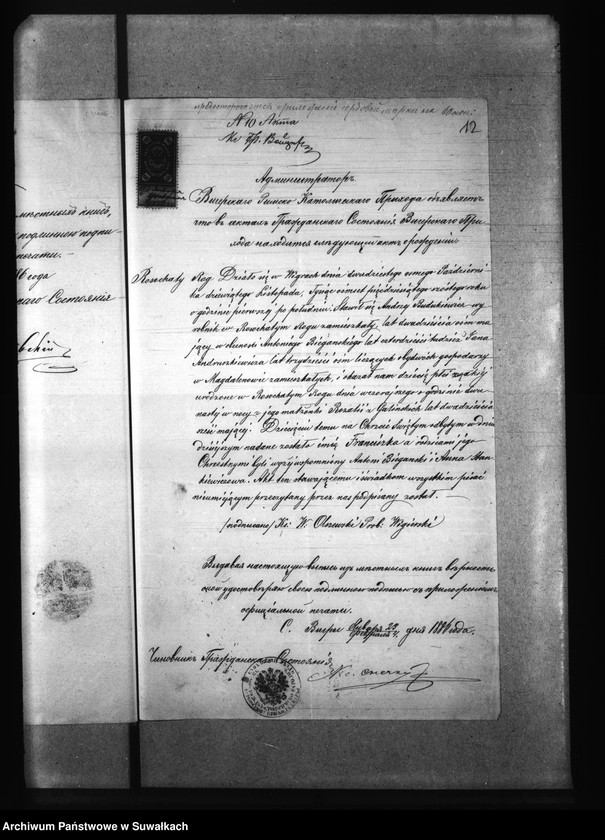 12
N 10 Акта
Администраторъ
Вигерскаго Римско-Католическаго Прихода объявляетъ
что въ актахъ Гражданскаго Состоянія Вигерскаго При-
хода находится слѣдующій актъ рожденія
Rosochaty Róg. Działo się w Wigrach dnia dwudziestego ósmego Październi
ka dziewiątego Listopada, Tysiąc ośmset pięćdziesiątego szóstego roku
o godzinie pierwszej po południu. Stawił się Andrzej Budukiewicz wy
robnik w Rosochatym Rogu zamieszkały, lat dwadzieścia ośm ma
jący w obecności Antoniego Biegańskiego lat czterdzieści tudzież Jana
Andruszkiewicza lat trzydzieści ośm liczących obydwóch gospodarzy
w Magdalenowie zamieszkałych, i okazał nam dziecię płci żeńskiej
urodzone w Rosochatym Rogu dnia wczorajszego o godzinie dwu
nastej w nocy z jego małżonki Rozalii z lat dwadzieścia
mającej. Dziecięciu temu na Chrzcie Świętym odbytym w dniu
dzisiejszym nadane zostało imię Franciszka a rodzicami jego
Chrzestnymi byli wyżej wspomniony Antoni Biegański i Anna Stan
kiewiczowa. Akt ten stawającemu i świadkom wszystkim pisać
nieumiejącym przeczytany przez nas podpisany został.
/podpisano/ Ks: W. Olszewski Prob: Wigierski
Выдавая настоящую выпись изъ мѣстныхъ книгъ въ вѣрности
оной удостовѣряю своею подписью съ приложеніемъ
оффиціальной печати.
С. Вигры Января 23 Февраля 4 дня 1886 года.
Чиновникъ Гражданскаго Состоянія
мѣстныхъ книгъ,
подписи
печати.
6 года
наго Состоянія
Archiwum Państwowe w Suwałkach